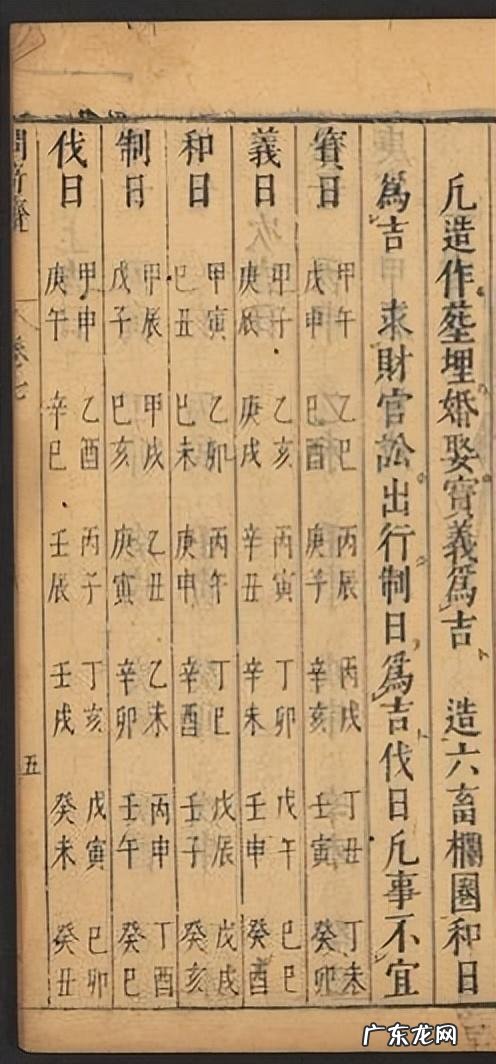 凡造作塟埋婚娶寳義爲吉　造六畜欄圈和日
爲吉　求財官訟出行制日爲吉伐日凡事不宜
寳日
甲午 乙巳 丙辰 丙戌 丁丑 丁未
戊申 己酉 庚子 辛亥 壬寅 癸卯
義日
甲子 乙亥 丙寅 丁卯 戊午 己巳
庚辰 庚戌 辛丑 辛未 壬申 癸酉
和日
甲寅 乙卯 丙午 丁巳 戊辰 戊戌
己丑 己未 庚申 辛酉 壬子 癸亥
制日
甲辰 甲戌 乙丑 乙未 丙申 丁酉
戊子 己亥 庚寅 辛卯 壬午 癸巳
伐日
甲申 乙酉 丙子 丁亥 戊寅 己卯
庚午 辛巳 壬辰 壬戌 癸未 癸丑
卷七
五
广东龙网